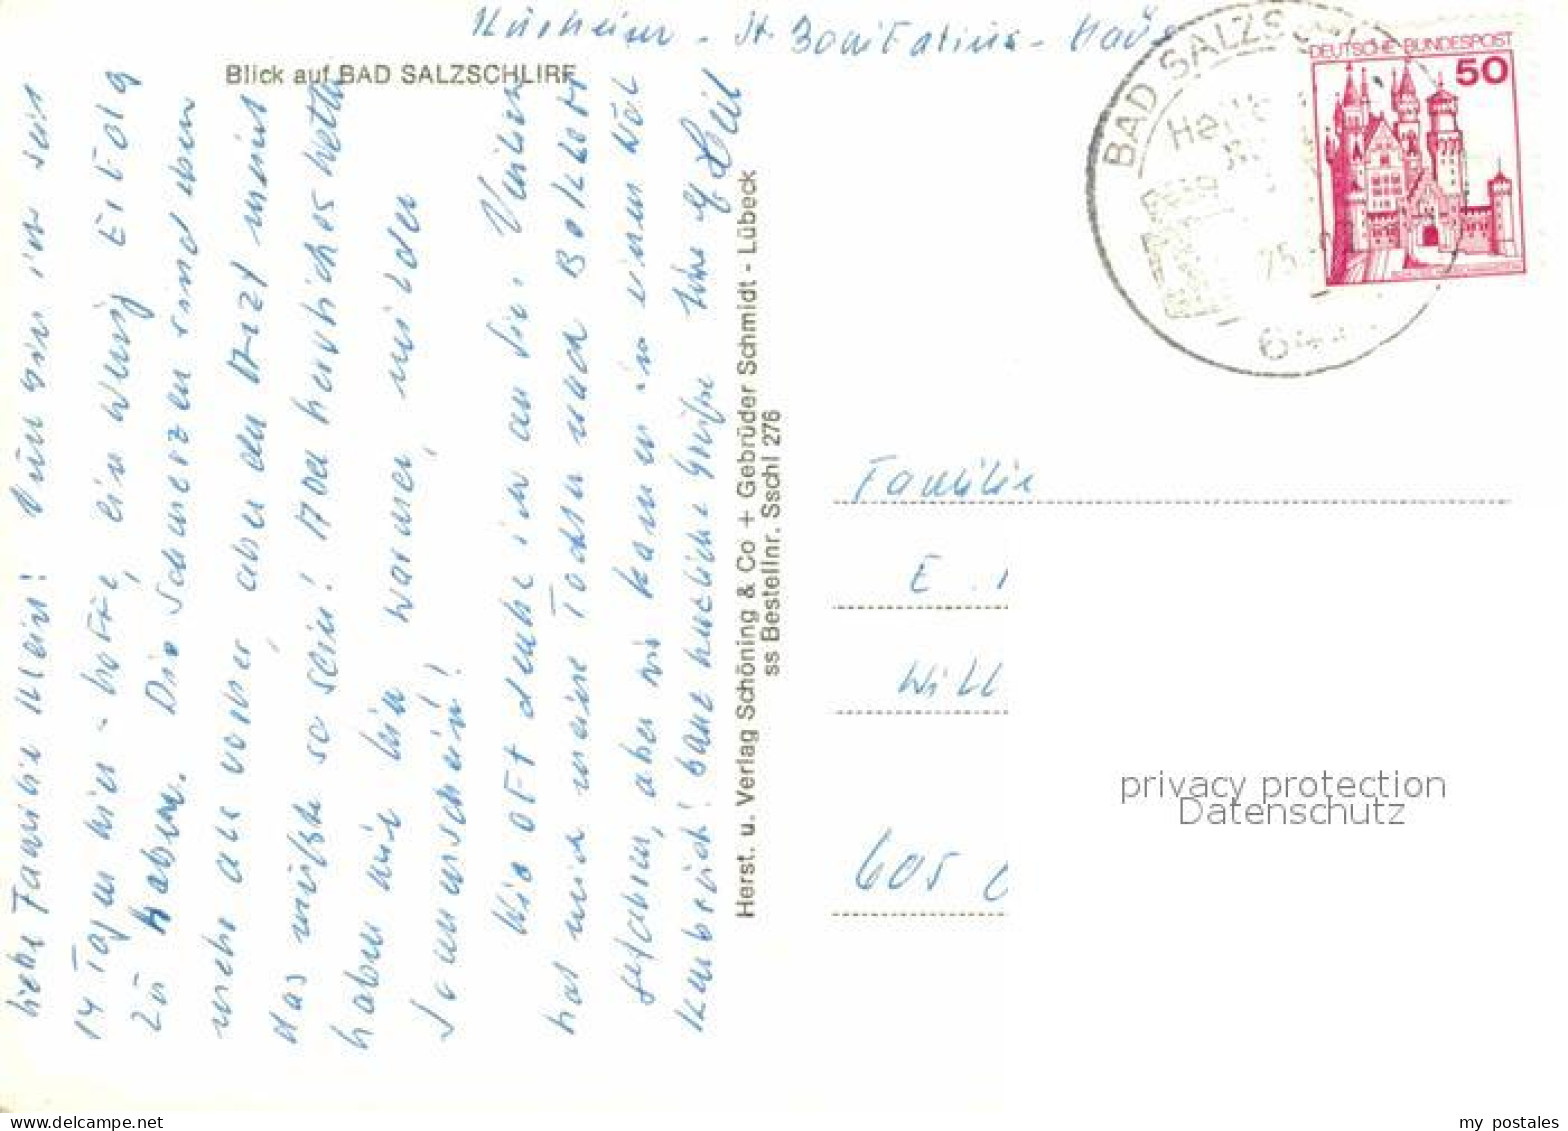 Kurheim - St. Bonifatius - Haus
Blick auf BAD SALZSCHLIRF
Liebe Familie Klein! Nun bin ich seit
14 Tagen hier - hoffe, ein wenig Erfolg
zu haben. Die Schmerzen sind eben
mehr als vorher, aber der Arzt meint
das müßte so sein! Aber herrliches Wetter
haben wir hier warmer, milder
Sonnenschein!
Wie oft denke ich an Sie. Vorher
hat mich meine Tochter nach
gefahren, aber wir kamen in einen Wol
kenbruch! Ganz herzliche Grüße Ihre
Herst. u. Verlag Schöning & Co + Gebrüder Schmidt - Lübeck
ss Bestellnr. Sschl 276
BAD SALZSCHL
Heil
25.
64
DEUTSCHE BUNDESPOST
50
Familie
E.
Will
605 O
privacy protection
Datenschutz
my postales